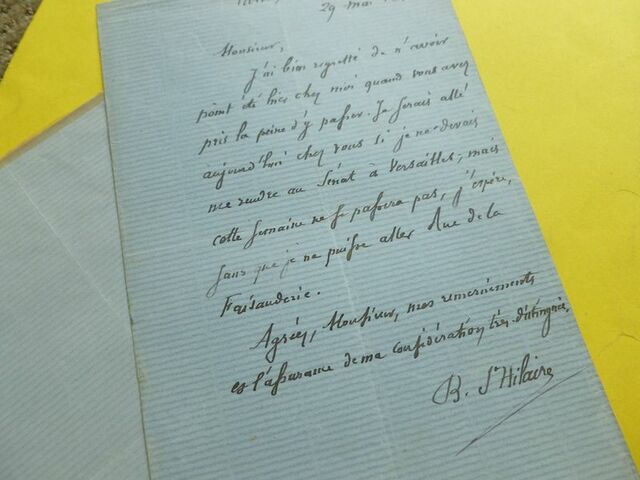 29 mai
Monsieur,
J'ai bien regretté de n'avoir
point été hier chez moi quand vous avez
pris la peine d'y passer. Je serais allé
aujourd'hui chez vous si je ne devais
me rendre au Sénat à Versailles, mais
cette semaine ne se passera pas, j'espère,
sans que je ne puisse aller Rue de la
Faisanderie.
Agréez, Monsieur, mes remerciements
et l'assurance de ma considération très distinguée,
B. St Hilaire